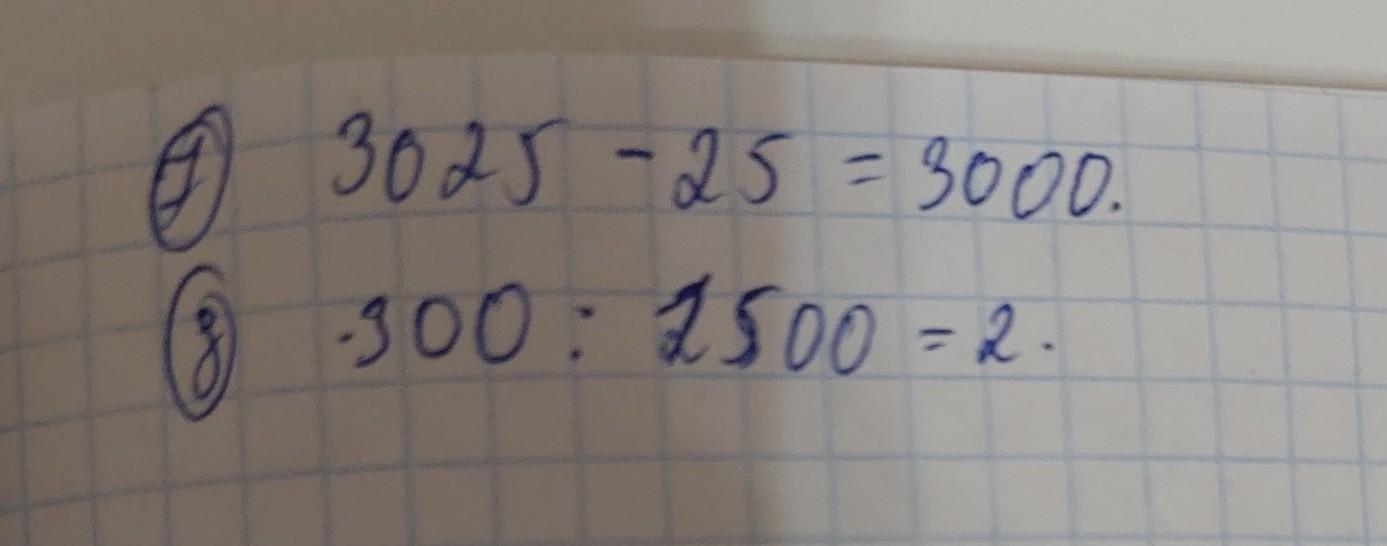 7 3025 - 25 = 3000.
8 300 : 1500 = 2.